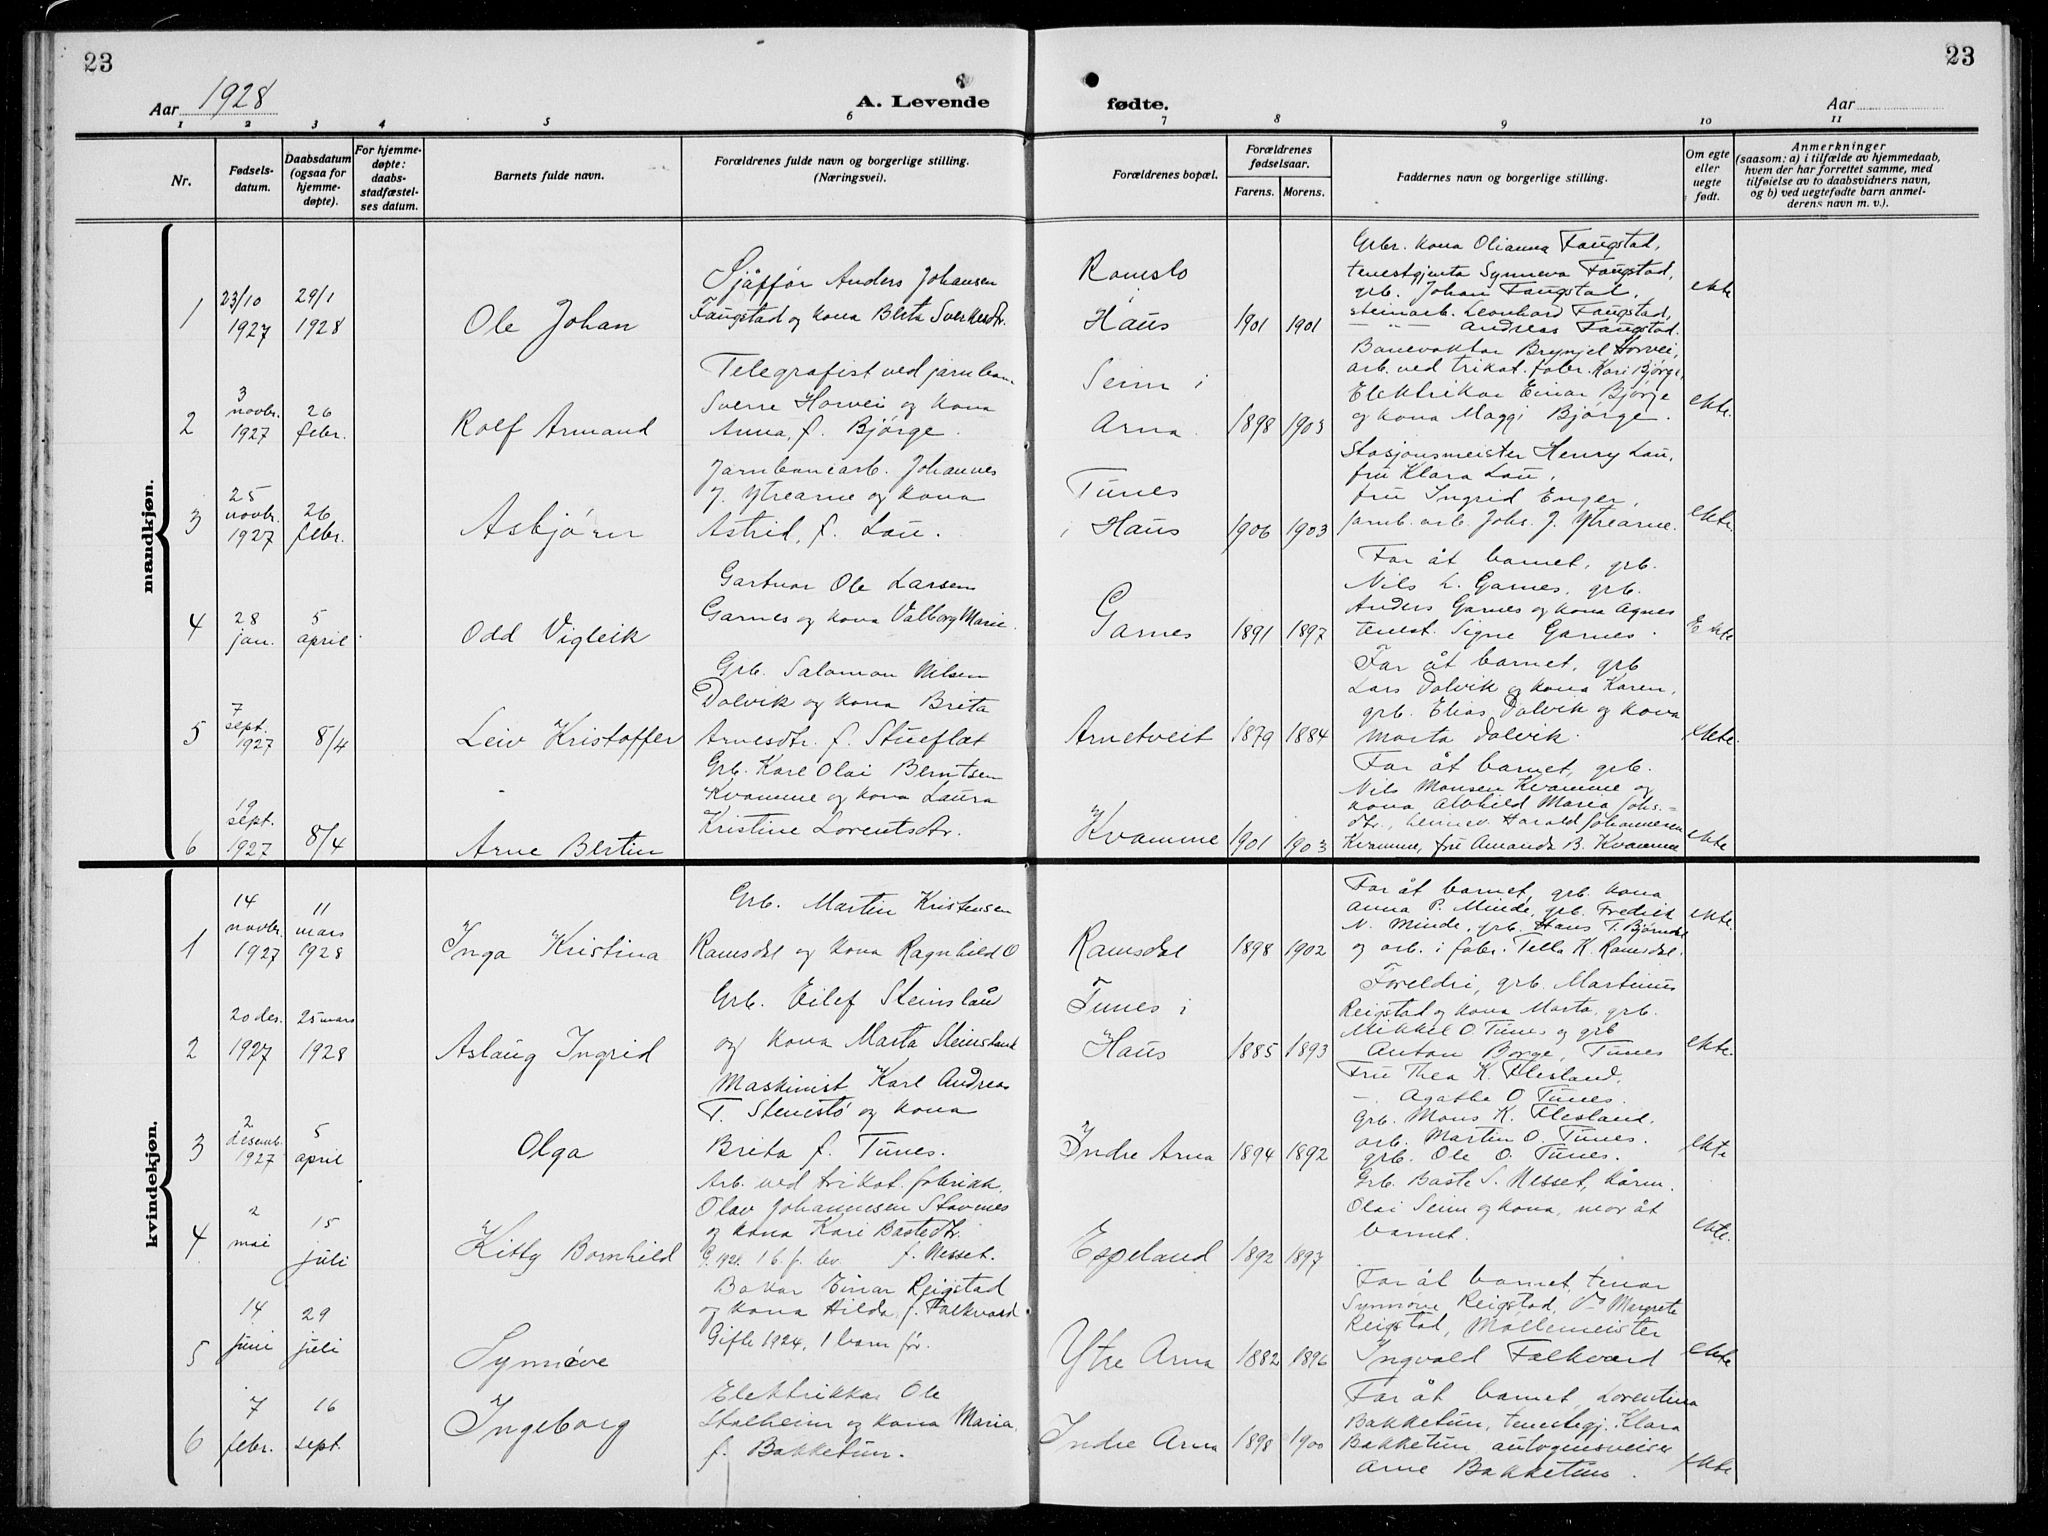 23
23
Aar 1928
A. Levende
fødte.
Aar
1 2 3 4 5 6 7 8 9 10 11
Nr.
Fødsels-
datum.
Daabsdatum
(ogsaa for
hjemme-
døpte).
For hjemme-
døpte:
daabs-
stadfæstel-
ses datum.
Barnets fulde navn.
Forældrenes fulde navn og borgerlige stilling.
(Næringsvei).
Forældrenes bopæl.
Forældrenes
fødselsaar.
Farens. Morens.
Faddernes navn og borgerlige stilling.
Om egte
eller
uegte
født.
Anmerkninger
(saasom: a) i tilfælde av hjemmedaab,
hvem der har forrettet samme, med
tilføielse av to daabsvidners navn,
og b) ved uegtefødte barn anmel-
derens navn m. v.).
mandkjøn.
1
23/10
1927
29/1
1928
Ole Johan
Sjåffør Anders Johansen
Faugstad og kona Berta Sverkesdtr.
Romslo
Haus
1901 1901
Grbr. kona Olianna Faugstad,
tenestgjenta Synneva Faugstad,
grb. Johan Faugstad,
steinarb. Leonhard Faugstad,
— " — Andreas Faugstad.
ekte
2
3
novbr.
1927
26
febr.
Rolf Armand
Telegrafist ved jarnban
Sverre Horvei og kona
Anna, f. Bjørge.
Seim i
Arna.
1898 1903
Banevaktar Brynjel Horvei,
arb. ved trikot. fabr. Kari Bjørge,
Elektrikar Einar Bjørge
og kona Maggi Bjørge.
ekte.
3
25
novbr.
1927
26
febr.
Asbjørn
Jarnbanearb. Johannes
J. Ytrearne og kona
Astrid, f. Lau.
Tunes
i Haus
1906 1903
Stasjonsmeister Henry Lau,
fru Klara Lau,
fru Ingrid Enger,
jarnb. arb. Johs. J. Ytrearne.
ekte.
4
28
jan.
5
april
Odd Vigleik
Gartnar Ole Larsen
Garnes og kona Valborg Marie.
Garnes
1891 1897
Far åt barnet, grb.
Nils L. Garnes, grb.
Anders Garnes og kona Agnes
tenest. Signe Garnes.
Ekte
5
7
sept.
1927
8/4
Leiv Kristoffer
Grb. Salomon Nilsen
Dalvik og kona Brita
Arnesdtr. f. Stueflat
Arnetveit
1879 1884
Far åt barnet, grb
Lars Dalvik og kona Karen,
grb. Elias Dalvik og kona
Marta Dalvik.
ekte.
6
19
sept.
1927
8/4
Arne Bertin
Grb. Karl Olai Berntsen
Kvamme og kona Laura
Kristine Lorentsdtr.
Kvamme
1901 1903
Far åt barnet, grb.
Nils Monsen Kvamme og
kona Alvhild Maria Johs.=
dtr., Harald Johannesen
Kvamme, fru Amanda B. Kvamme
ekte
kvindekjøn.
1
14
novbr.
1927
11
mars
1928
Inga Kristina
Grb. Martin Kristensen
Ramsdal og kona Ragnhild O
Ramsdal
1898 1902
Far åt barnet, grb. kona
Anna P. Minde, grb. Fredrik
N. Minde, grb. Hans T. Bjørndal
og arb. i fabr. Tella K. Ramsdal.
ekte.
2
20 des.
1927
25 mars
1928
Aslaug Ingrid
Grb. Eilef Steinsland
og kona Marta Steinsland
Tunes i
Haus
1885 1893
Foreldri, grb. Martinus
Reigstad og kona Marta, grb.
Mikkel O. Tunes og grb
Anton Borge, Tunes
ekte.
3
2
desemb.
1927
5
april
Olga
Maskinist Karl Andreas
T. Stenestø og kona
Brita f. Tunes.
Indre Arna
1894 1892
Fru Thea K. Flesland,
— . Agathe O Tunes.
Grb. Mons K. Flesland,
arb. Martin O. Tunes.
grb. Ole O. Tunes.
ekte
4
2
mai
15
juli
Kitty Bornhild
Arb. ved trikot. fabrikk
Olav Johannesen Stavenes
og kona Kari Bastedtr.
G. 1921. 1 b. f. lev f. Nesset.
Espeland
1892 1897
Grb. Baste S. Nesset, kårm.
Olai Seim og kona, mor åt
barnet.
ekte.
5
14
juni
29
juli
Synnøve
Bakar Einar Reigstad
og kona Hilda, f. Falkvard
Gifte 1924, 1 barn før.
Ytre Arna
1882 1896
Far åt barnet, tenar
Synnøve Reigstad, Do Margrete
Reigstad, Møllemeister
Ingvald Falkvard
ekte
6
7
febr.
16
sept.
Ingeborg
Elektrikkar Ole
Stalheim og kona Maria,
f. Bakketun.
Indre Arna
1898 1900
Far åt barnet, Lorentina
Bakketun, tenestegj. Klara
Bakketun, autogensveiser
Arne Bakketun.
ekte